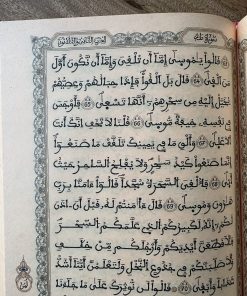 سورة طه
الحزب الثاني والثلاثون
قَالُواْ يَٰمُوسِيٰٓ إِمَّآ أَن تُلْقِيَ وَإِمَّآ أَن نَّكُونَ أَوَّلَ
مَنَ اَلْقِيٰ قَالَ بَلَ اَلْقُواْ فَإِذَا حِبَالُهُمْ وَعِصِيُّهُمْ
يُخَيَّلُ إِلَيْهِ مِن سِحْرِهِمُۥٓ أَنَّهَا تَسْعِيٰ فَأَوْجَسَ
فِي نَفْسِهِۦ خِيفَةً مُّوسِيٰ قُلْنَا لَا تَخَفِ اِنَّكَ أَنتَ
اَلَاعْلِيٰ وَأَلْقِ مَا فِي يَمِينِكَ تَلَقَّفْ مَا صَنَعُوٓاْ
إِنَّمَا صَنَعُواْ كَيْدُ سَٰحِرٍ وَلَا يُفْلِحُ اُلسَّاحِرُ حَيْثُ
أَتِيٰ فَأُلْقِيَ اَلسَّحَرَةُ سُجَّداً قَالُوٓاْ ءَامَنَّا بِرَبِّ
هَٰرُونَ وَمُوسِيٰ قَالَ ءَا۬مَنتُمْ لَهُۥ قَبْلَ أَنَ اٰذَنَ
لَكُمُۥٓ إِنَّهُۥ لَكَبِيرُكُمُ اُلذِي عَلَّمَكُمُ اُلسِّحْرَ
فَلَأُقَطِّعَنَّ أَيْدِيَكُمْ وَأَرْجُلَكُم مِّنْ خِلَٰفٍ
وَلَأُصَلِّبَنَّكُمْ فِي جُذُوعِ اِلنَّخْلِ وَلَتَعْلَمُنَّ أَيُّنَآ أَشَدُّ
عَذَاباً وَأَبْقِيٰ قَالُواْ لَن نُّوثِرَكَ عَلَيٰ مَا جَآءَنَا